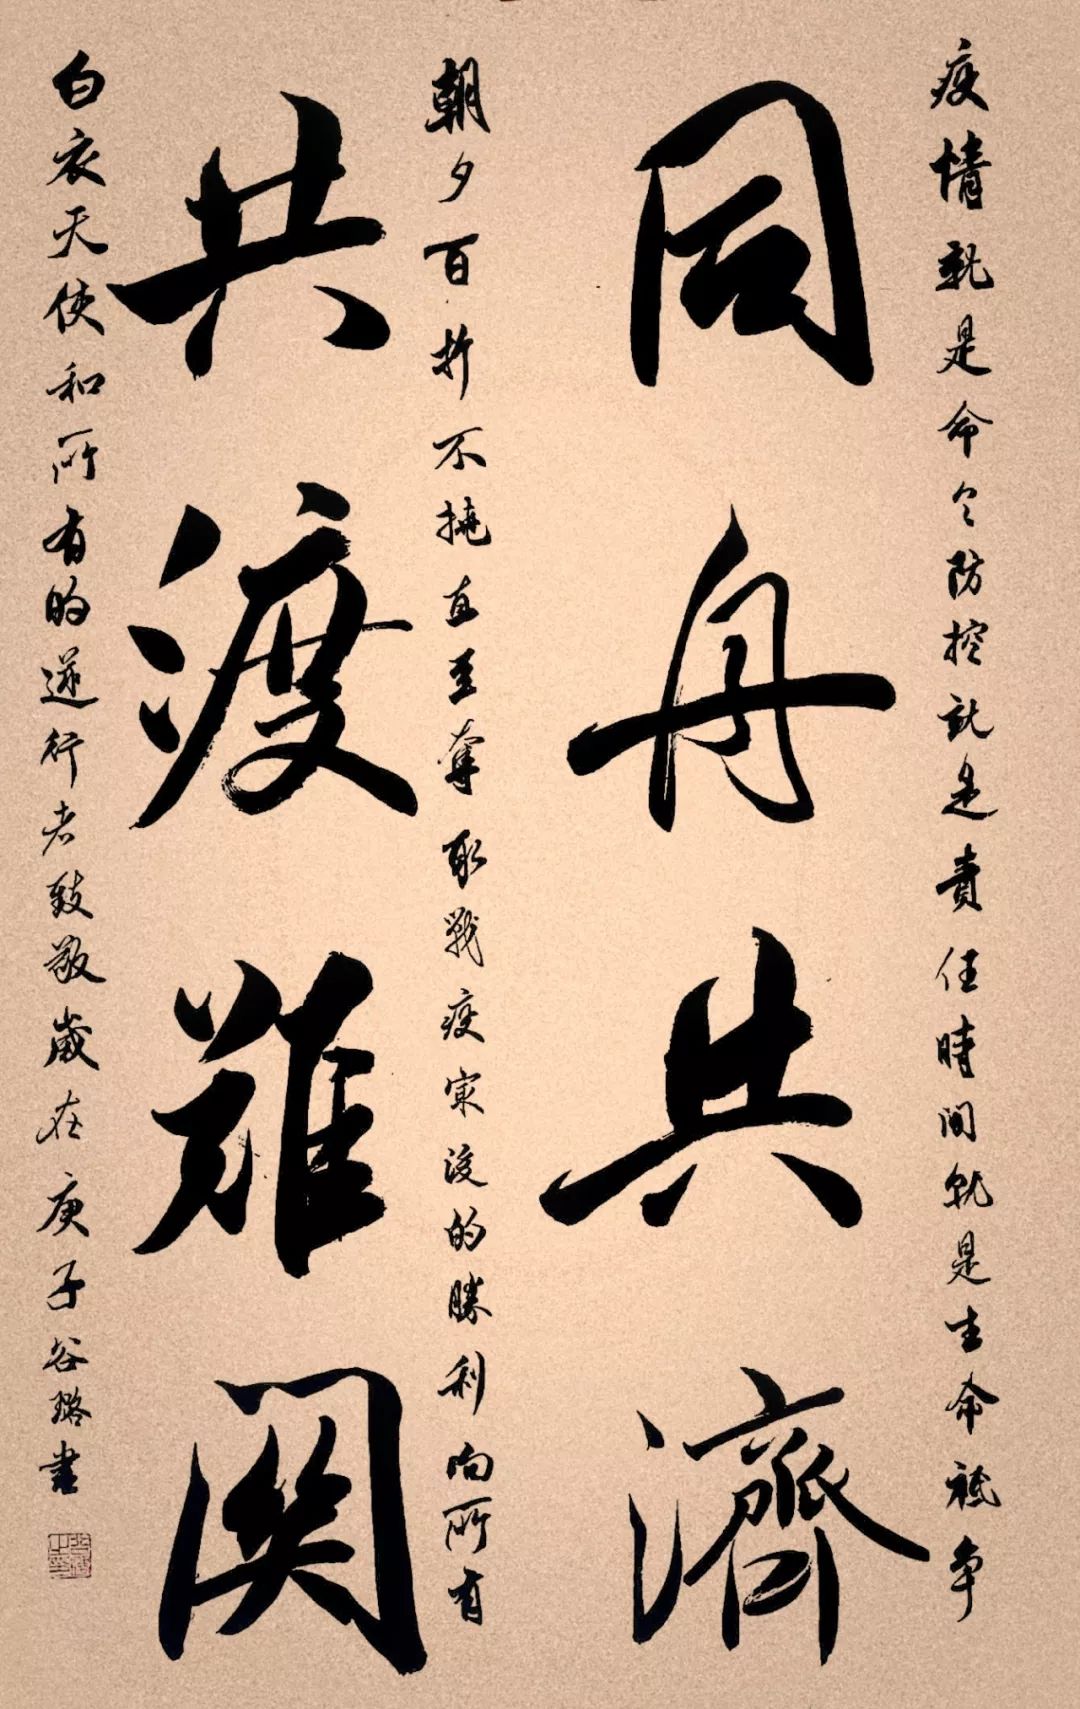 疫情就是命令防控就是責任時間就是生命祗争
同舟共濟
朝夕百折不撓直至奪取戰疫最後的勝利向所有
共渡難関
白衣天使和所有的逆行者致敬歲在庚子谷璐書